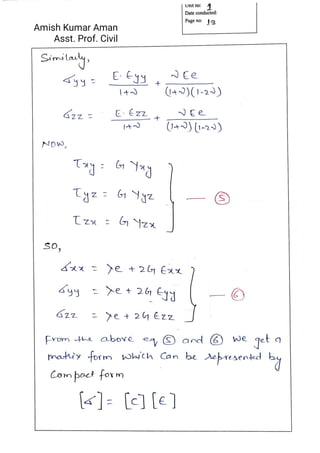 Unit no: 1
Date conducted:
Page no: 12
Amish Kumar Aman
Asst. Prof. Civil
Similarly,
σyy = E·Єyy / 1+ν + νEe / (1+ν)(1-2ν)
σzz = E·Єzz / 1+ν + νEe / (1+ν)(1-2ν)
NOW,
τxy = G γxy
τyz = G γyz — ⑤
τzx = G γzx
SO,
σxx = λe + 2G Єxx
σyy = λe + 2G Єyy — ⑥
σzz = λe + 2G Єzz
From the above eq ⑤ and ⑥ we get a
matrix form which can be represented by
Compact form
[σ] = [C] [Є]